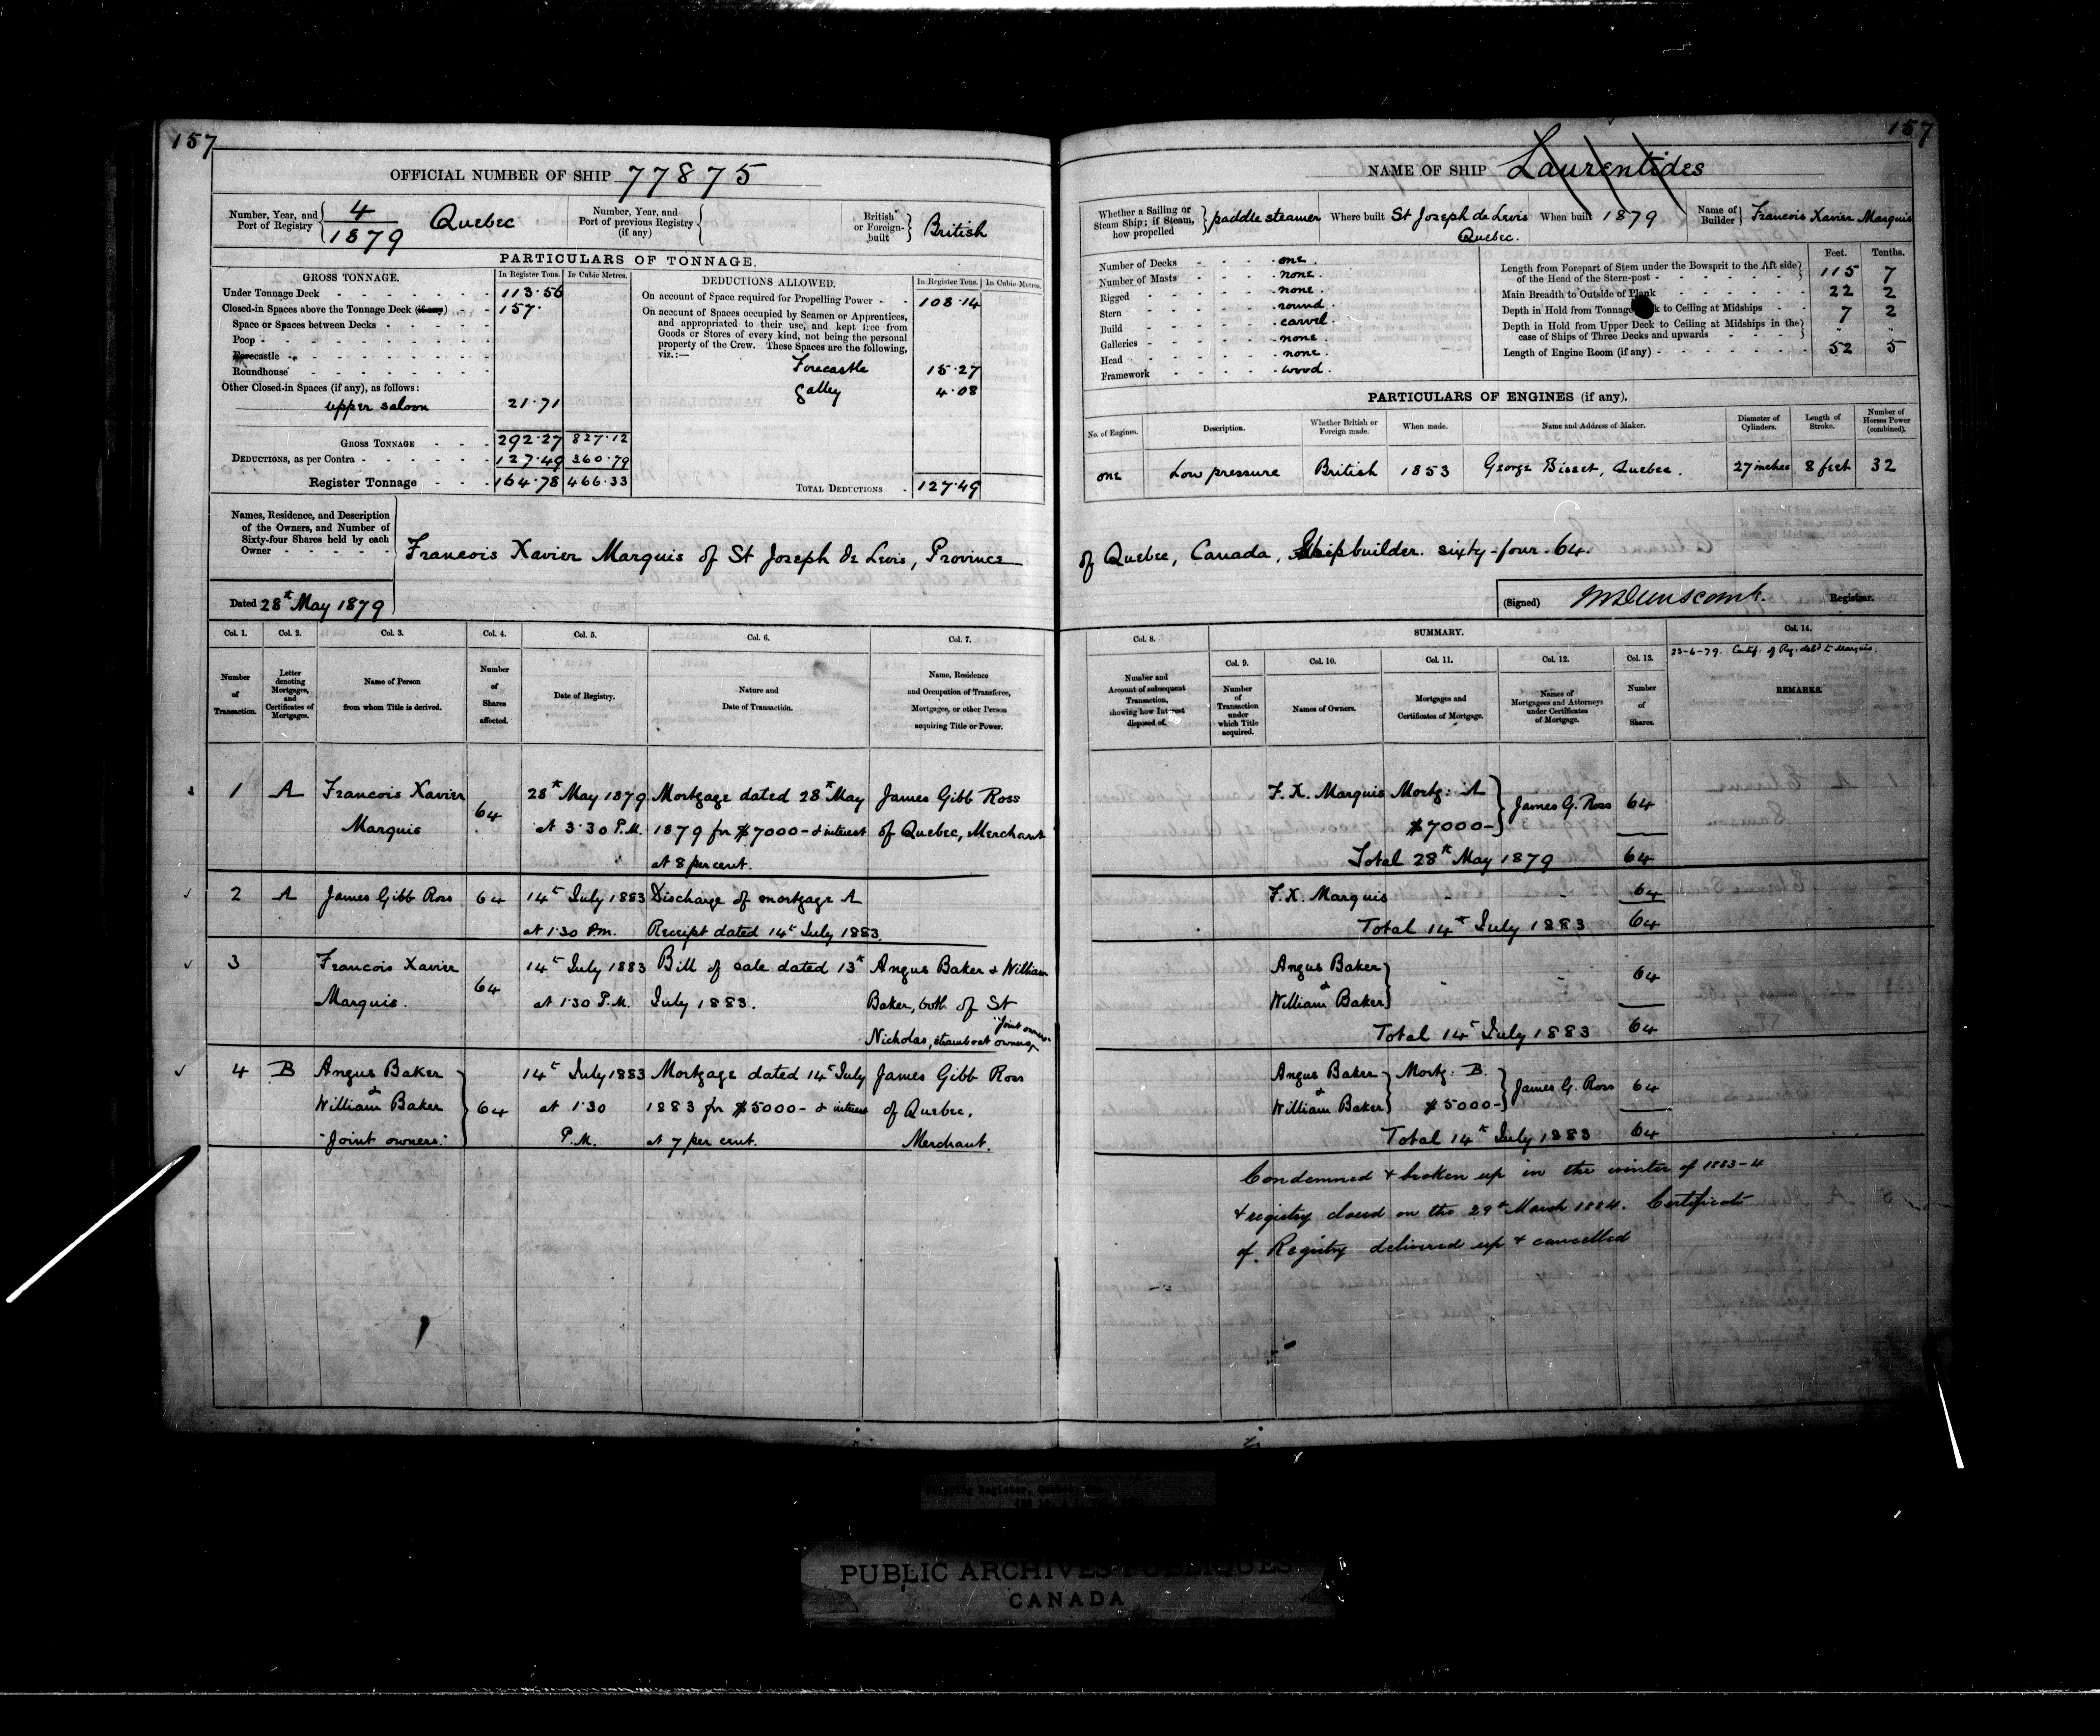 157
OFFICIAL NUMBER OF SHIP 77875
Number, Year, and Port of Registry 4/1879 Quebec
Number, Year, and Port of previous Registry (if any)
British or Foreign-built British
PARTICULARS OF TONNAGE.
GROSS TONNAGE. In Register Tons. In Cubic Metres.
Under Tonnage Deck 113.56
Closed-in Spaces above the Tonnage Deck (if any) 157.
Space or Spaces between Decks
Poop
Forecastle
Roundhouse
Other Closed-in Spaces (if any), as follows:
upper saloon 21.71
GROSS TONNAGE 292.27 827.12
DEDUCTIONS, as per Contra 127.49 360.79
Register Tonnage 164.78 466.33
DEDUCTIONS ALLOWED. In Register Tons. In Cubic Metres.
On account of Space required for Propelling Power 108.14
On account of Spaces occupied by Seamen or Apprentices,
and appropriated to their use, and kept free from
Goods or Stores of every kind, not being the personal
property of the Crew. These Spaces are the following,
viz.:—
Forecastle 15.27
Galley 4.08
TOTAL DEDUCTIONS 127.49
Names, Residence, and Description
of the Owners, and Number of
Sixty-four Shares held by each
Owner
Francois Xavier Marquis of St Joseph de Levis, Province
Dated 28th May 1879
Col. 1. Col. 2. Col. 3. Col. 4. Col. 5. Col. 6. Col. 7.
Number of Transaction.
Letter denoting Mortgages, and Certificates of Mortgages.
Name of Person from whom Title is derived.
Number of Shares affected.
Date of Registry.
Nature and Date of Transaction.
Name, Residence and Occupation of Transferee, Mortgagee, or other Person acquiring Title or Power.
1 A Francois Xavier 64 28th May 1879 Mortgage dated 28th May James Gibb Ross
Marquis at 3.30 P.M. 1879 for $7000- & interest of Quebec, Merchant
at 8 per cent.
2 A James Gibb Ross 64 14th July 1883 Discharge of mortgage A
at 1.30 P.m. Receipt dated 14th July 1883.
3 Francois Xavier 64 14th July 1883 Bill of sale dated 13th Angus Baker & William
Marquis. at 1.30 P.M. July 1883. Baker, both of St
Nicholas, steamboat owners, "Joint owners"
4 B Angus Baker 14th July 1883 Mortgage dated 14th July James Gibb Ross
& William Baker 64 at 1.30 1883 for $5000- & interest of Quebec.
"Joint owners." P.M. at 7 per cent. Merchant.
157
NAME OF SHIP Laurentides
Whether a Sailing or Steam Ship; if Steam, how propelled paddle steamer
Where built St Joseph de Levis Quebec.
When built 1879
Name of Builder Francois Xavier Marquis
Number of Decks one.
Number of Masts none.
Rigged none.
Stern round.
Build carvel.
Galleries none.
Head none.
Framework wood.
Feet. Tenths.
Length from Forepart of Stem under the Bowsprit to the Aft side
of the Head of the Stern-post 115 7
Main Breadth to Outside of Plank 22 2
Depth in Hold from Tonnage Deck to Ceiling at Midships 7 2
Depth in Hold from Upper Deck to Ceiling at Midships in the
case of Ships of Three Decks and upwards
Length of Engine Room (if any) 52 5
PARTICULARS OF ENGINES (if any).
No. of Engines. Description. Whether British or Foreign made. When made. Name and Address of Maker. Diameter of Cylinders. Length of Stroke. Number of Horses Power (combined).
one Low pressure British 1853 George Bisset, Quebec. 27 inches 8 feet 32
of Quebec, Canada, Shipbuilder. sixty-four. 64.
(Signed) Registrar.
Col. 8. SUMMARY. Col. 14.
Col. 9. Col. 10. Col. 11. Col. 12. Col. 13.
23-6-79. Certif. of Reg. deld to Marquis.
Number and Account of subsequent Transaction, showing how Interest disposed of.
Number of Transaction under which Title acquired.
Names of Owners.
Mortgages and Certificates of Mortgage.
Names of Mortgagees and Attorneys under Certificates of Mortgage.
Number of Shares.
REMARKS.
F. X. Marquis Mortg: A James G. Ross 64
$7000-
Total 28th May 1879 64
F. X. Marquis 64
Total 14th July 1883 64
Angus Baker & 64
William Baker
Total 14th July 1883 64
Angus Baker & Mortg: B. James G. Ross 64
William Baker $5000-
Total 14th July 1883 64
Condemned & broken up in the winter of 1883-4
& registry closed on the 29th March 1884. Certificate
of Registry delivered up & cancelled
Shipping Register, Quebec,
PUBLIC ARCHIVES PUBLIQUES
CANADA